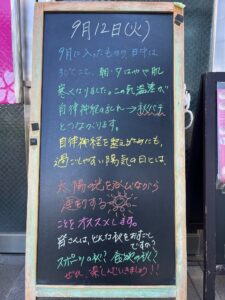 9月12日(火)
9月に入ったものの、日中は
30℃こえ、朝・夕はやや肌
寒くなりました。この気温差が
自律神経の乱れ→秋バテ
とつながります。
自律神経を整えるためにも、
過ごしやすい陽気の日には、
太陽の光を浴びながら
運動する
ことをオススメします。
皆さんは、どんな秋をおすごし
ですか?
スポーツの秋?食欲の秋?
ぜひ、楽しんでいきましょう!!